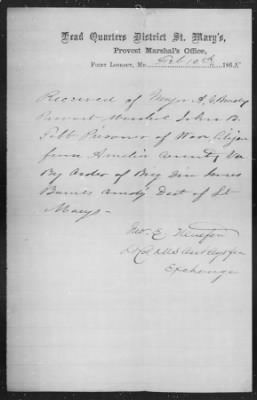 Head Quarters District St. Mary's,
Provost Marshal's Office,
Point Lookout, Md. Feb 10th 1865
Received of Major A. G. Brady
Provost Marshal John B.
Prisoner of War
from Amelia County Va
By Order of Brig Gen James
Barnes Comdg Dist of St
Marys
Jno. E. Mulford
Lt Col & Asst Agt for
Exchange